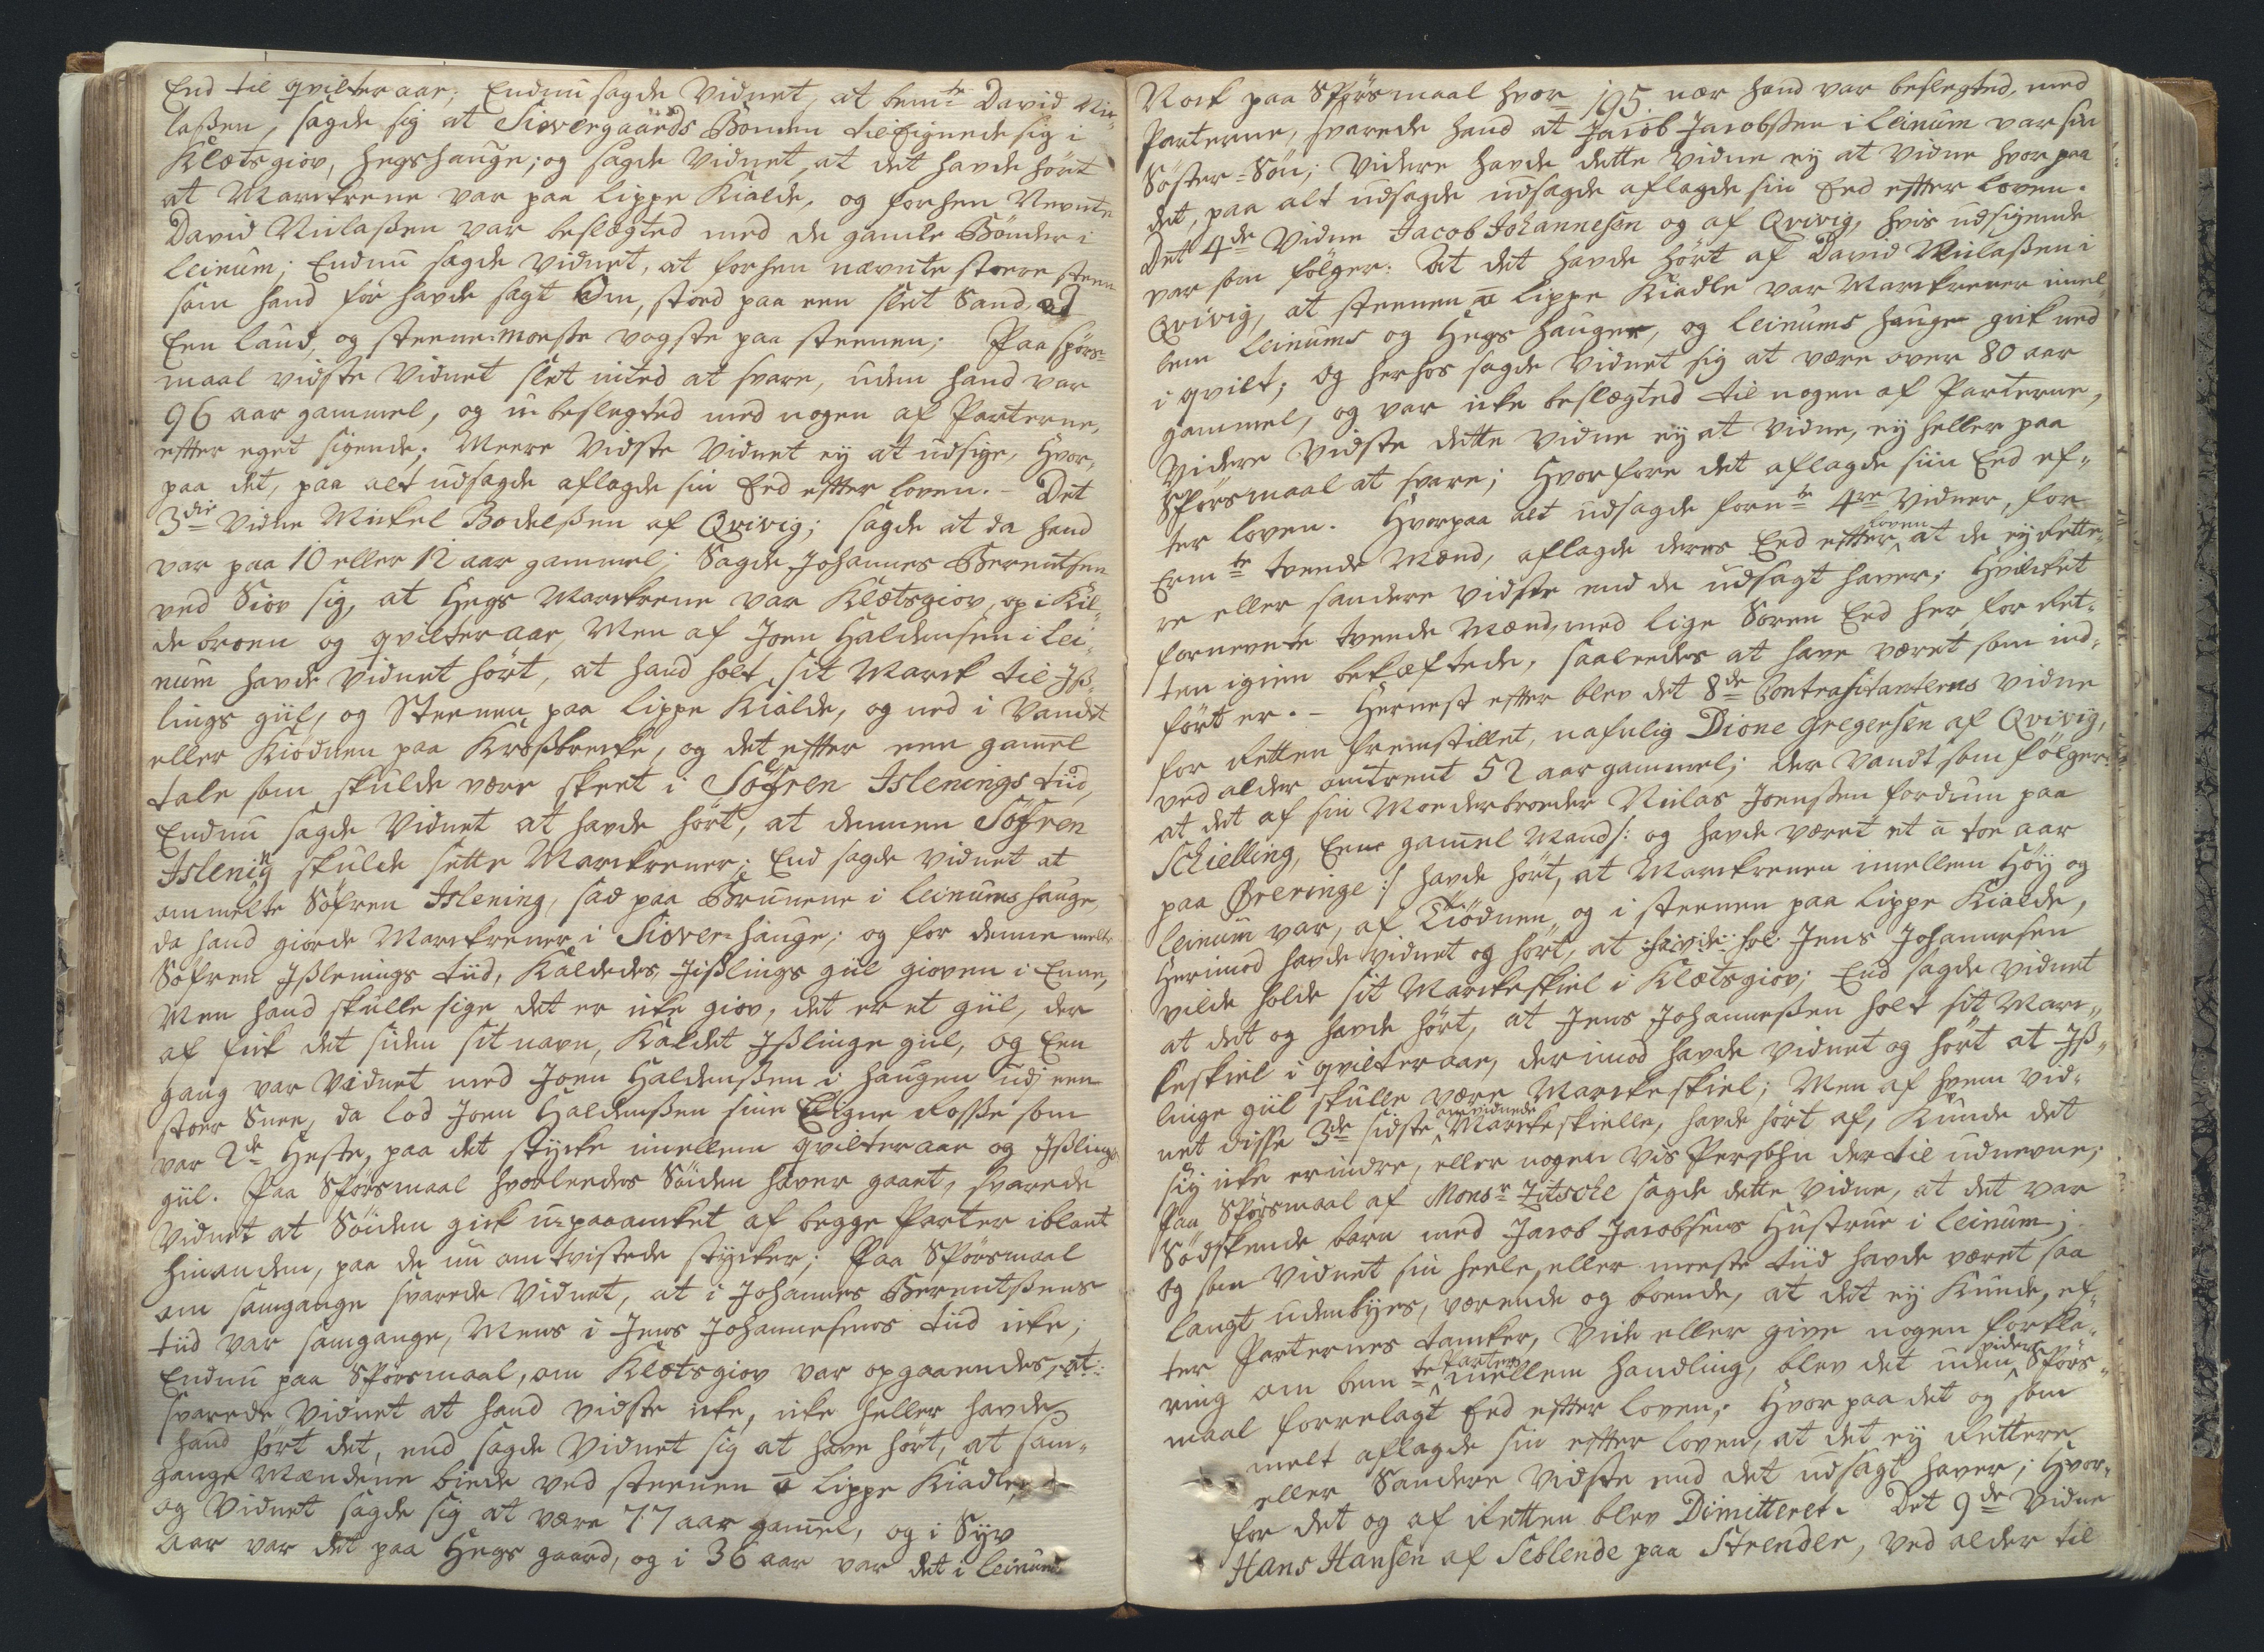 End til qvilteraar; Endnu sagde Vidnet, at bemte David Nic-
laßen, sagde sig at Siovergaards Bonden tileignede sig i
Klætsgiov, Hegshauge; og sagde Vidnet, at det havde hört
at Marckrene var paa Lippe Kialde, og forhen Nevnte
David Niclaßen var beslægted med de gamle Bönder i
Leinum; Endnu sagde Vidnet, at forhen nævnte stoere steen
som hand för havde sagt Om, stoed paa een slet Sand, ad
Een land, og steene Moeße vogste paa steenen; Paa spörs-
maal vidste Vidnet slet inted at svare, uden hand var
96 aar gammel, og u-beslegted med nogen af Parterne,
efter eget sigende; Meere Vidste Vidnet ey at udsige, Hvor-
paa det, paa alt udsagde aflagde sin Eed efter loven. - Det
3die Vidne Mickel Bodelßen af Qvivig; sagde at da hand
var paa 10 eller 12 aar gammel; Sagde Johannes Berentsen
ved Siov sig, at Hegs Marckrene var Klætsgiov, op i Kil-
debroen og qvilteraar, Men af Joen Haldensen i Lei-
num havde Vidnet hört, at hand holt sit Marck til Iß-
lings giil, og Steenen paa Lippe Kialde, og ned i Vandet
eller Kiödnen paa Kroßbrecke, og det efter een gamel
tale som skulde være skeet i Söfren Islenings tiid,
Endnu sagde Vidnet at havde hört, at denne Söfren
Islening skulde sette Marckrener; End sagde vidnet at
ommelte Söfren Islening, sad paa Brunene i Leinums hauge,
da hand giorde Marckrener i Siover-hauge; og for denne melte
Söfren Ißlenings tiid, Kaldedes Jißlings giil gioven i Enne,
Men hand skulle sige det er icke giov, det er et giil, der
af fick det siden sit navn, Kaldet Ißlinge giil, og Een
gang var Vidnet med Joen Haldenßen i haugen udj een
stoer Snee, da lod Joen Haldenßen sine Eigne Roße som
var 2de Heste, paa det stycke imellem qvilteraar og Ißlings
giil. Paa Spörsmaal hvorleedes Söiden haver gaaet, svarede
Vidnet at Söiden gick u-paaancket af begge Parter iblant
hinanden, paa de nu omtvistede stycker; Paa Spörsmaal
om samgange svarede Vidnet, at i Johannes Berentßens
tiid var samgange, Mens i Jens Johannesens tiid icke;
Endnu paa Spörsmaal, om Klætsgiov var opgaaendes, at:
svarede Vidnet at hand vidste icke, icke heller havde
hand hört det, end sagde Vidnet sig at have hört, at sam-
gange Mændene biede ved steenen a Lippe Kiadle,
og Vidnet sagde sig at være 77 aar gamel, og i Syv
aar var det paa Hegs gaard, og i 36 aar var det i Leinum
195.
Nock paa Spörsmaal hvor nær hand var beslegted, med
Parterne, svarede hand at Jacob Jacobßen i Leinum var sin
Söster-Sön; Videre havde dette vidne ey at vidne hvor paa
det, paa alt udsagde udsagde aflagde sin Eed efter loven.
Det 4de Vidne Jacob Johannesen og af Qvivig, hvis udsigende
var som fölger: At det havde hört af David Niclaßen i
Qvivig, at steenen a Lippe Kiadle var Marckrener imel-
lem Leinums og Hegs hauger, og Leinums hauge gick ned
i qvilt; og herhos sagde Vidnet sig at være over 80 aar
gammel, og var icke beslægted til nogen af Parterne,
Videre Vidste dette vidne ey at vidne, ey heller paa
Spörsmaal at svare; Hvorfore det aflagde siin Eed ef-
ter loven. Hvorpaa alt udsagde fornte 4re Vidner, for
Ermte tvende Mænd, aflagde deres Eed efter loven at de ey rette-
re eller sandere vidste end de udsagt haver; Hvilcket
fornevnte tvende Mænd, med lige Soren Eed her for Ret-
ten igien bekæftede, saaleedes at have været som ind-
fört er. - Hernest efter blev det 8de Contracitanterns vidne
for Retten fremstillet, nafnlig Dione Gregersen af Qvivig,
ved alder omtrent 52 aar gammel; der vandt som fölger:
at det af sin Moederbroeder Niclas Joenßen fordum paa
Schielling, Een gamel Mand/: og havde været et a toe aar
paa Ørering e :/ havde hört, at Marckrenen imellem Höy og
Leinum var, af Tiödnen og i steenen paa Lippe Kialde,
Herimod havde vidnet og hört, at Jens Johannesen
vilde holde sit Marckeskiel i Klætsgiov; End sagde vidnet
at det og havde hört, at Jens Johannesßen holt sit Marc-
keskiel i qvilteraar, derimod havde vidnet og hört at Iß-
linge giil skulle være Marckeskiel; Men af hvem vid-
net disse 3de sidste omvidnede Marckeskielle, havde hört af, Kunde det
sig icke erindre, eller nogen vis Persohn dertil udnevne;
Paa Spörsmaal af Monsr Zitscke sagde dette Vidne, at det var
Södskende barn med Jacob Jacobsens Hustrue i Leinum;
og som Vidnet sin heele, eller moeste tiid havde været saa
langt udenbyes, værende og boende, at det ey Kunde, ef-
ter Parternes tancker, Vide eller give nogen forkla-
ring om bemte Parters mellem handling, blev det uden videre Spörs-
maal forrelagt Eed efter loven; Hvor paa det og som
melt aflagde sin efter loven, at det ey Rettere
eller Sandere vidste end det udsagt haver; Hvor-
for det og af Retten blev Dimitteret. Det 9de Vidne
Hans Hansen af Seblende paa Strender, ved alder til